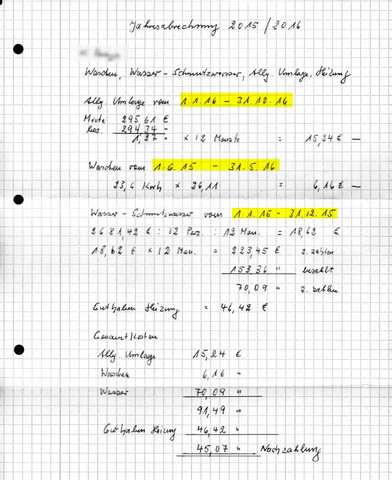 Jahresabrechnung 2015/2016
Waschen, Wasser-Schmutzwasser, Allg. Umlage, Heizung
Allg. Umlage vom 1.1.16 - 31.12.16
Miete 295,61 €
294,34 -
1,27 " × 12 Monate = 15,24 € -
Waschen vom 1.6.15 - 31.5.16
23,6 Kwh × 26,11 = 6,16 € -
Wasser-Schmutzwasser vom 1.1.15 - 31.12.15
2681,42 € : 12 Per. : 12 Mon. = 18,62 €
18,62 € × 12 Mon. = 223,45 € z. zahlen
153,36 " bezahlt
70,09 " z. zahlen
Guthaben Heizung = 46,42 €
Gesamtkosten
Allg. Umlage 15,24 €
Waschen 6,16 "
Wasser 70,09 "
91,49 "
Guthaben Heizung 46,42 "
45,07 " Nachzahlung